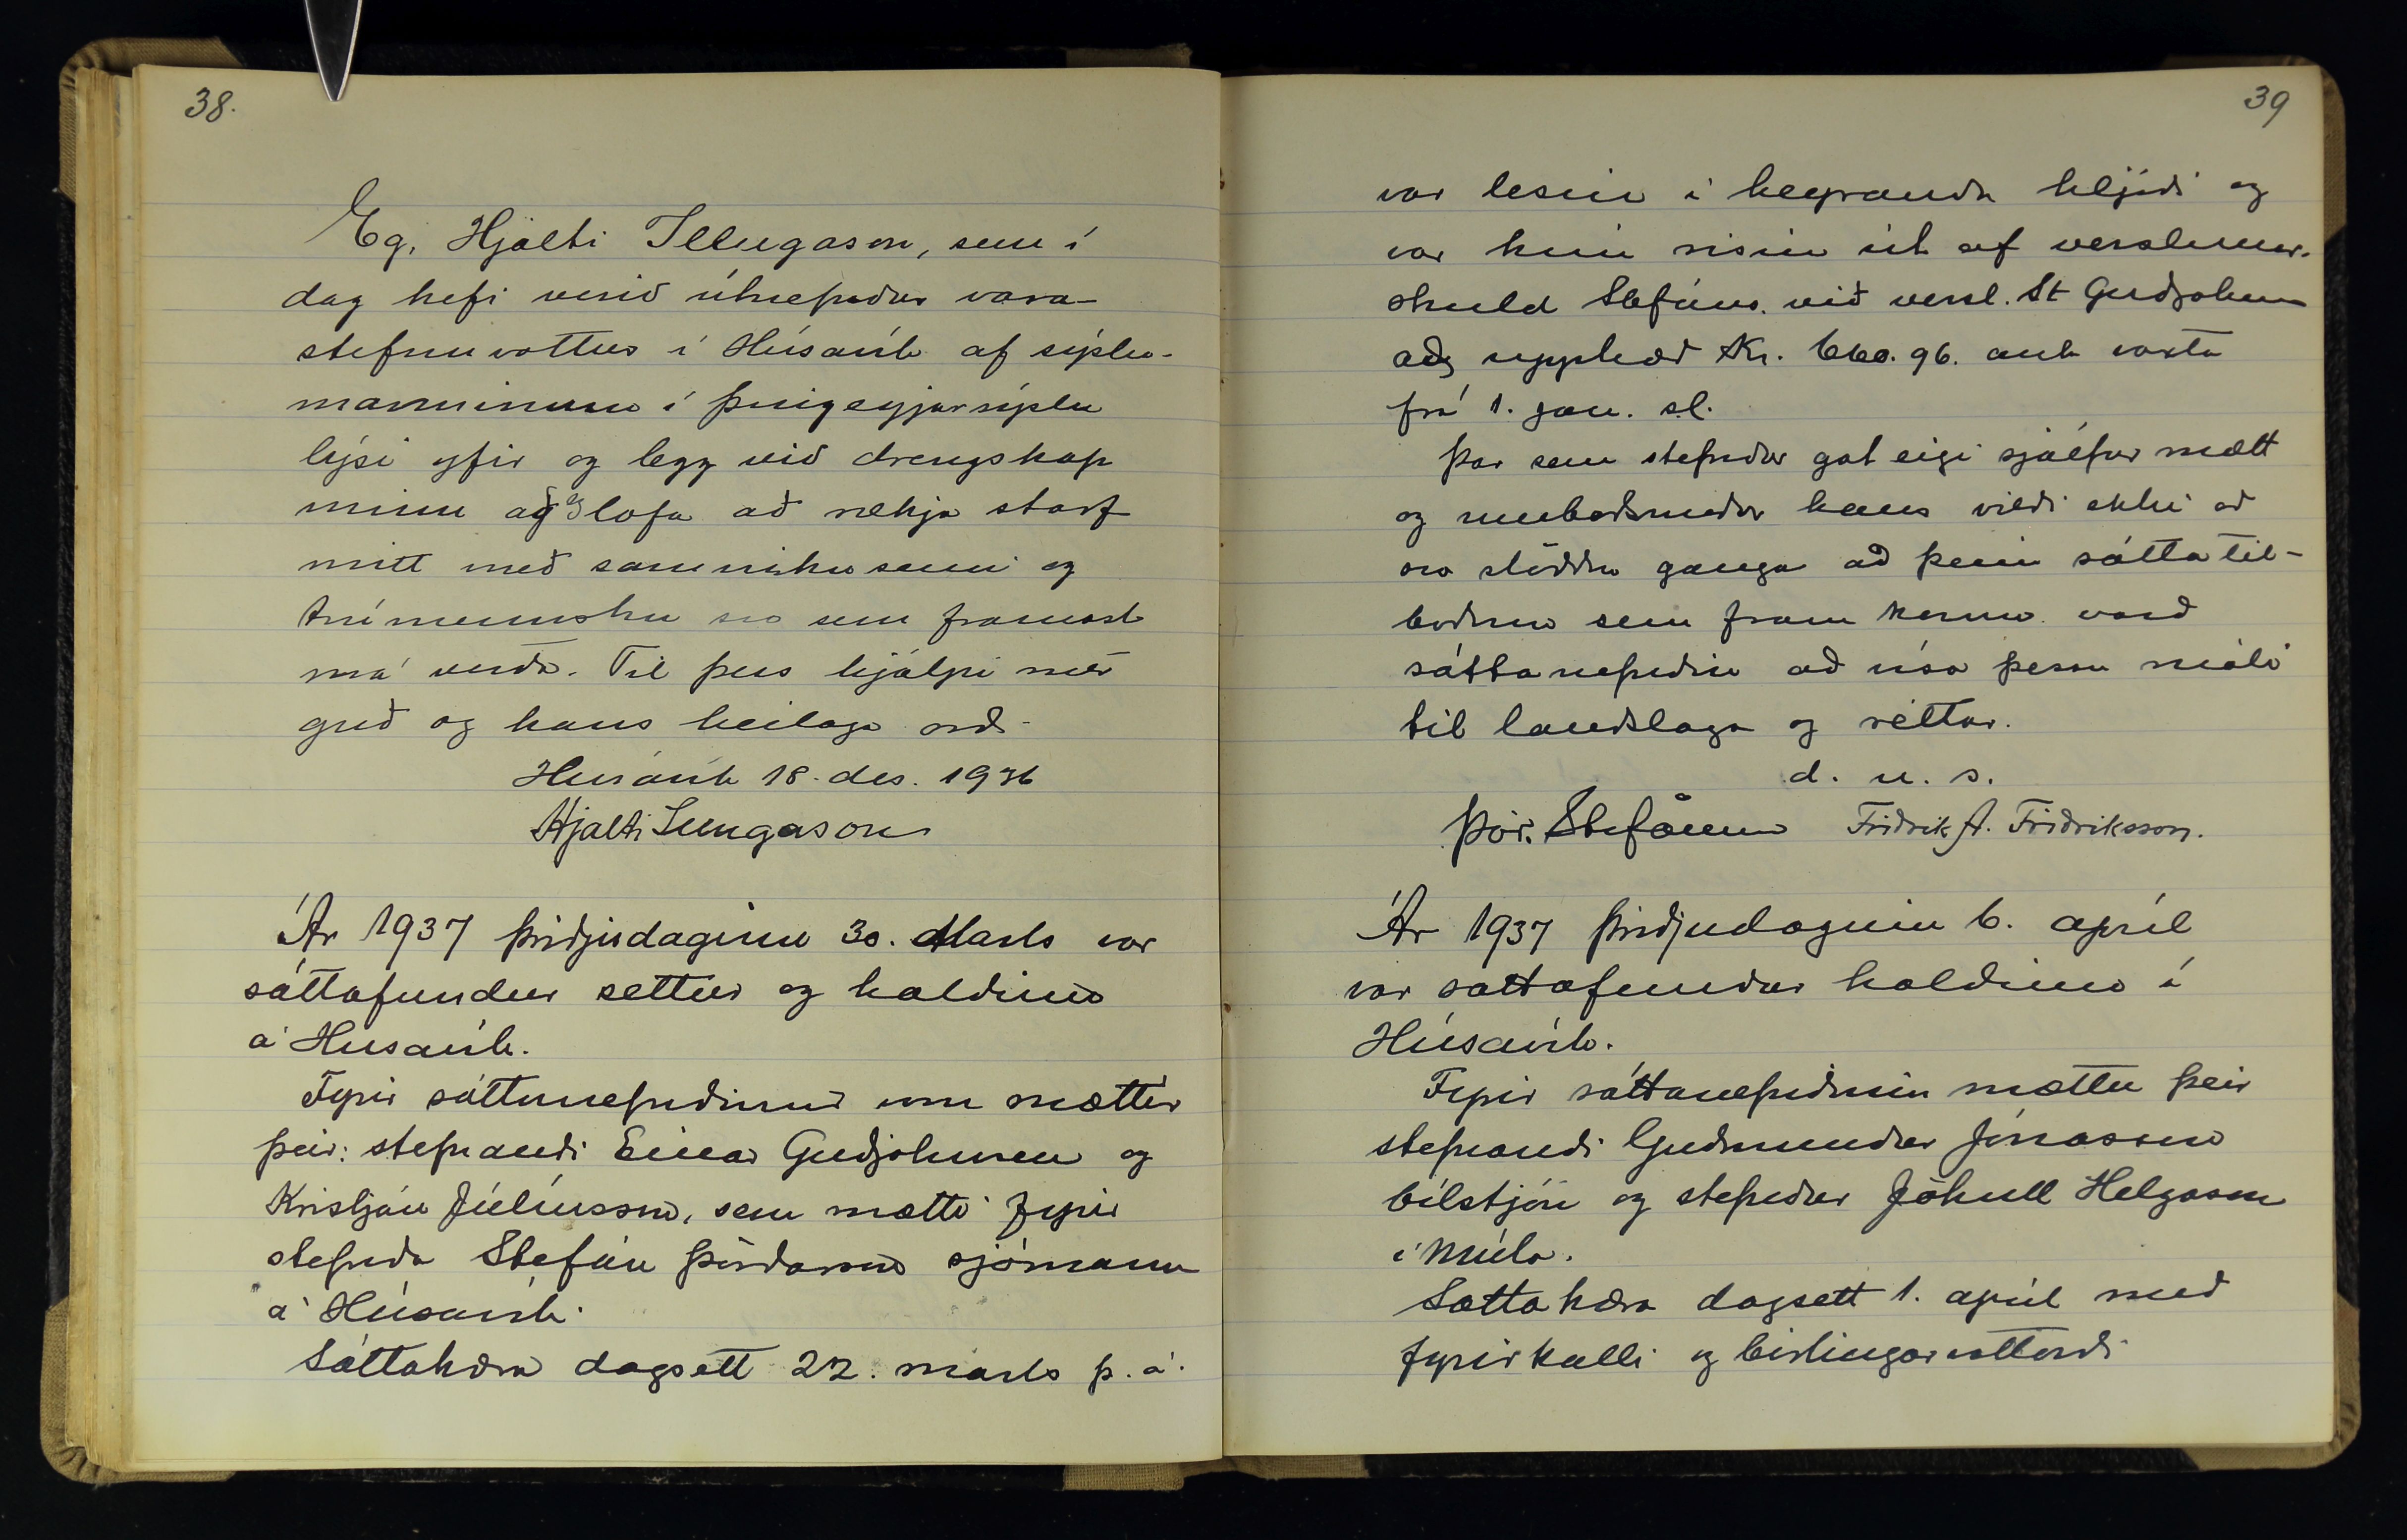 38.
Eg, Hjalti Illugason, sem í
dag hefi verið útnefndur vara-
stefnuvottur í Húsavík af sýslu-
manninum í Þingeyjarsýslu
lýsi yfir og legg við drengskap
minn að eg lofa að rækja starf
mitt með samvizkusemi og
trúmennsku svo sem framast
má verða. Til þess hjálpi mér
guð og hans heilaga orð.
Húsavík 18. des. 1936
Hjalti Illugason
Ár 1937 þriðjudaginn 30. Marts var
sáttafundur settur og haldinn
á Húsavík.
Fyrir sáttanefndinni mættu
þeir: stefnandi Einar Guðjohnsen og
Kristján Júlíusson, sem mætti fyrir
stefnda Stefán Þórðarson sjómann
á Húsavík.
Sáttakæra dagsett 22. marts þ. á.
39
var lesin í heyranda hljóði og
var hún risin út af verslunar-
skuld Stefáns við versl. St Guðjohnsen
að upphæð Kr. 660.96. auk vaxta
frá 1. jan. s.l.
Þar sem stefndur gat eigi sjálfur mætt
og umboðsmaður hans vildi ekki að
svo stöddu ganga að þeim sáttatil-
boðum sem fram komu varð
sáttanefndin að vísa þessu máli
til landslaga og réttar.
d. u. s.
Þór. Stefánsson Friðrik A. Friðriksson.
Ár 1937 þriðjudaginn 6. apríl
var sáttafundur haldinn í
Húsavík.
Fyrir sáttanefndinni mættu þeir
stefnandi Guðmundur Jónasson
bílstjóri og stefndur Jökull Helgason
í Múla.
Sáttakæra dagsett 1. apríl með
fyrirkalli og birtingarvottorði